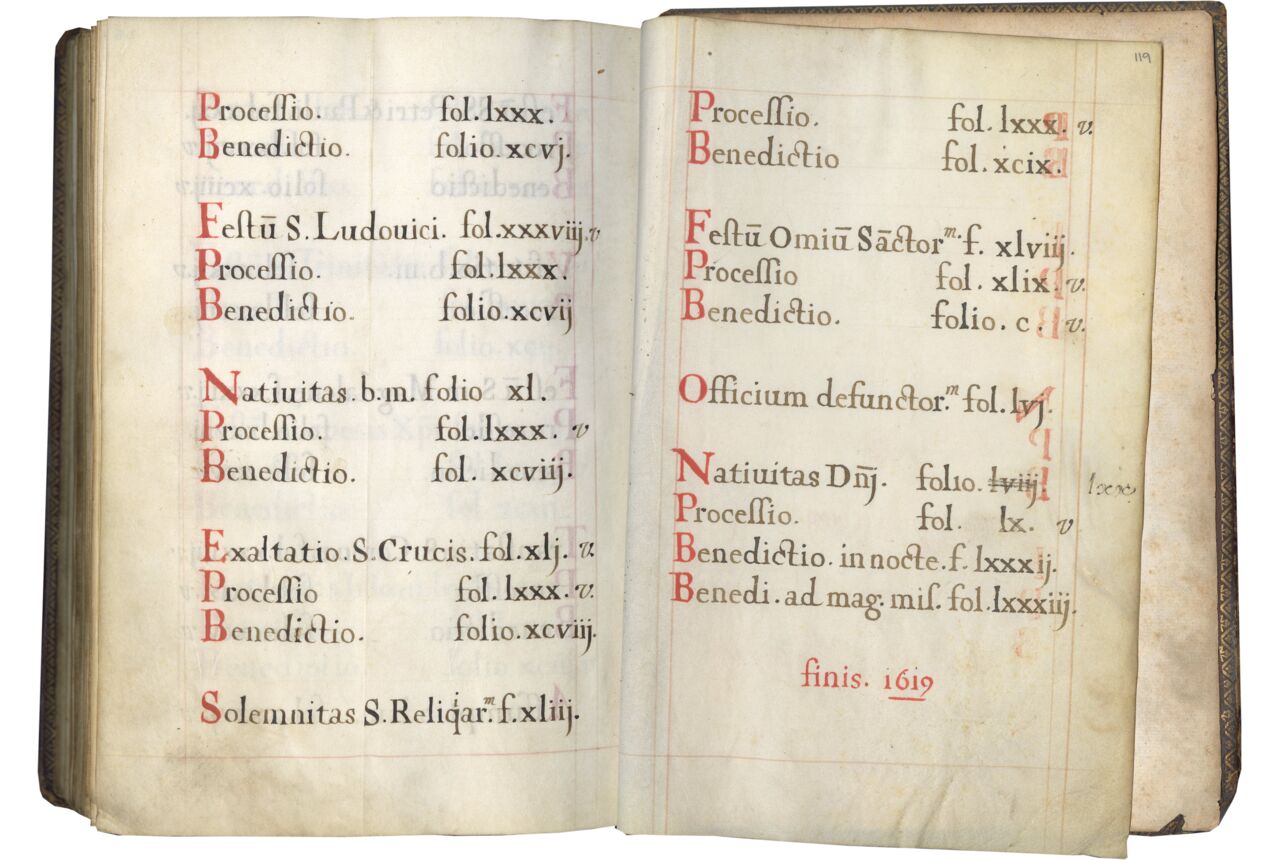 Processio. fol. lxxx.
Benedictio. folio. xcvj.
Festū S. Ludouici. fol. xxxviij. v
Processio. fol. lxxx.
Benedictio. folio. xcvij
Natiuitas. b. m. folio xl.
Processio. fol. lxxx. v
Benedictio. fol. xcviij.
Exaltatio. S. Crucis. fol. xlj. v.
Processio fol. lxxx. v.
Benedictio. folio. xcviij.
Solemnitas S. Reliq̇ar.ᵐ f. xliij.
119
Processio. fol. lxxx. v.
Benedictio fol. xcix.
Festū Omiū Sāctor.ᵐ f. xlviij.
Processio fol. xlix. v.
Benedictio. folio. c. v.
Officium defunctor.ᵐ fol. lvj.
Natiuitas Dn̄j. folio. lviij. lxxx
Processio. fol. lx. v
Benedictio. in nocte. f. lxxxij.
Benedi. ad mag. mis. fol. lxxxiij.
finis. 1619